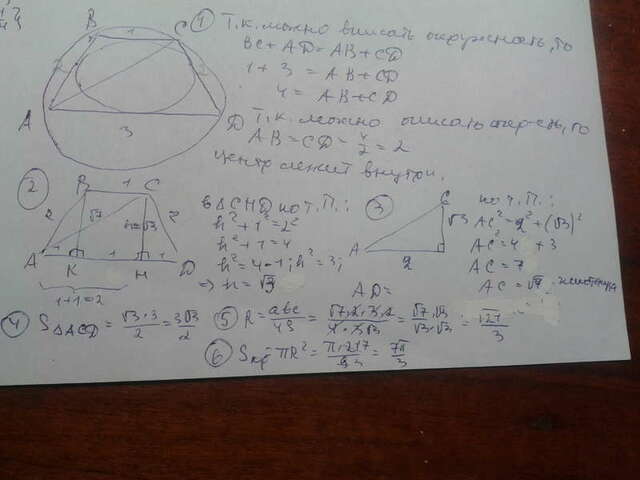 B 1 C
2
A 3 D
① Т.к. можно вписать окружность, то
BC + AD = AB + CD
1 + 3 = AB + CD
4 = AB + CD
Т.к. можно описать окр-сть, то
AB = CD = 4/2 = 2
центр лежит внутри.
②
B 1 C
2 √7 h=√3 2
A 1 K 1 H 1 D
1+1=2
в ΔCHD по т. П.:
h² + 1² = 2²
h² + 1 = 4
h² = 4 - 1; h² = 3;
⇒ h = √3
AD =
③
C
√3
A 2
по т. П.:
AC² = 2² + (√3)²
AC² = 4 + 3
AC = 7
AC = √7
④ SΔACD = √3·3/2 = 3√3/2
⑤ R = abc/4S = = √7·√3/√3·√3 = √21/3
⑥ Sкр = πR² = π·21/ = 7π/3